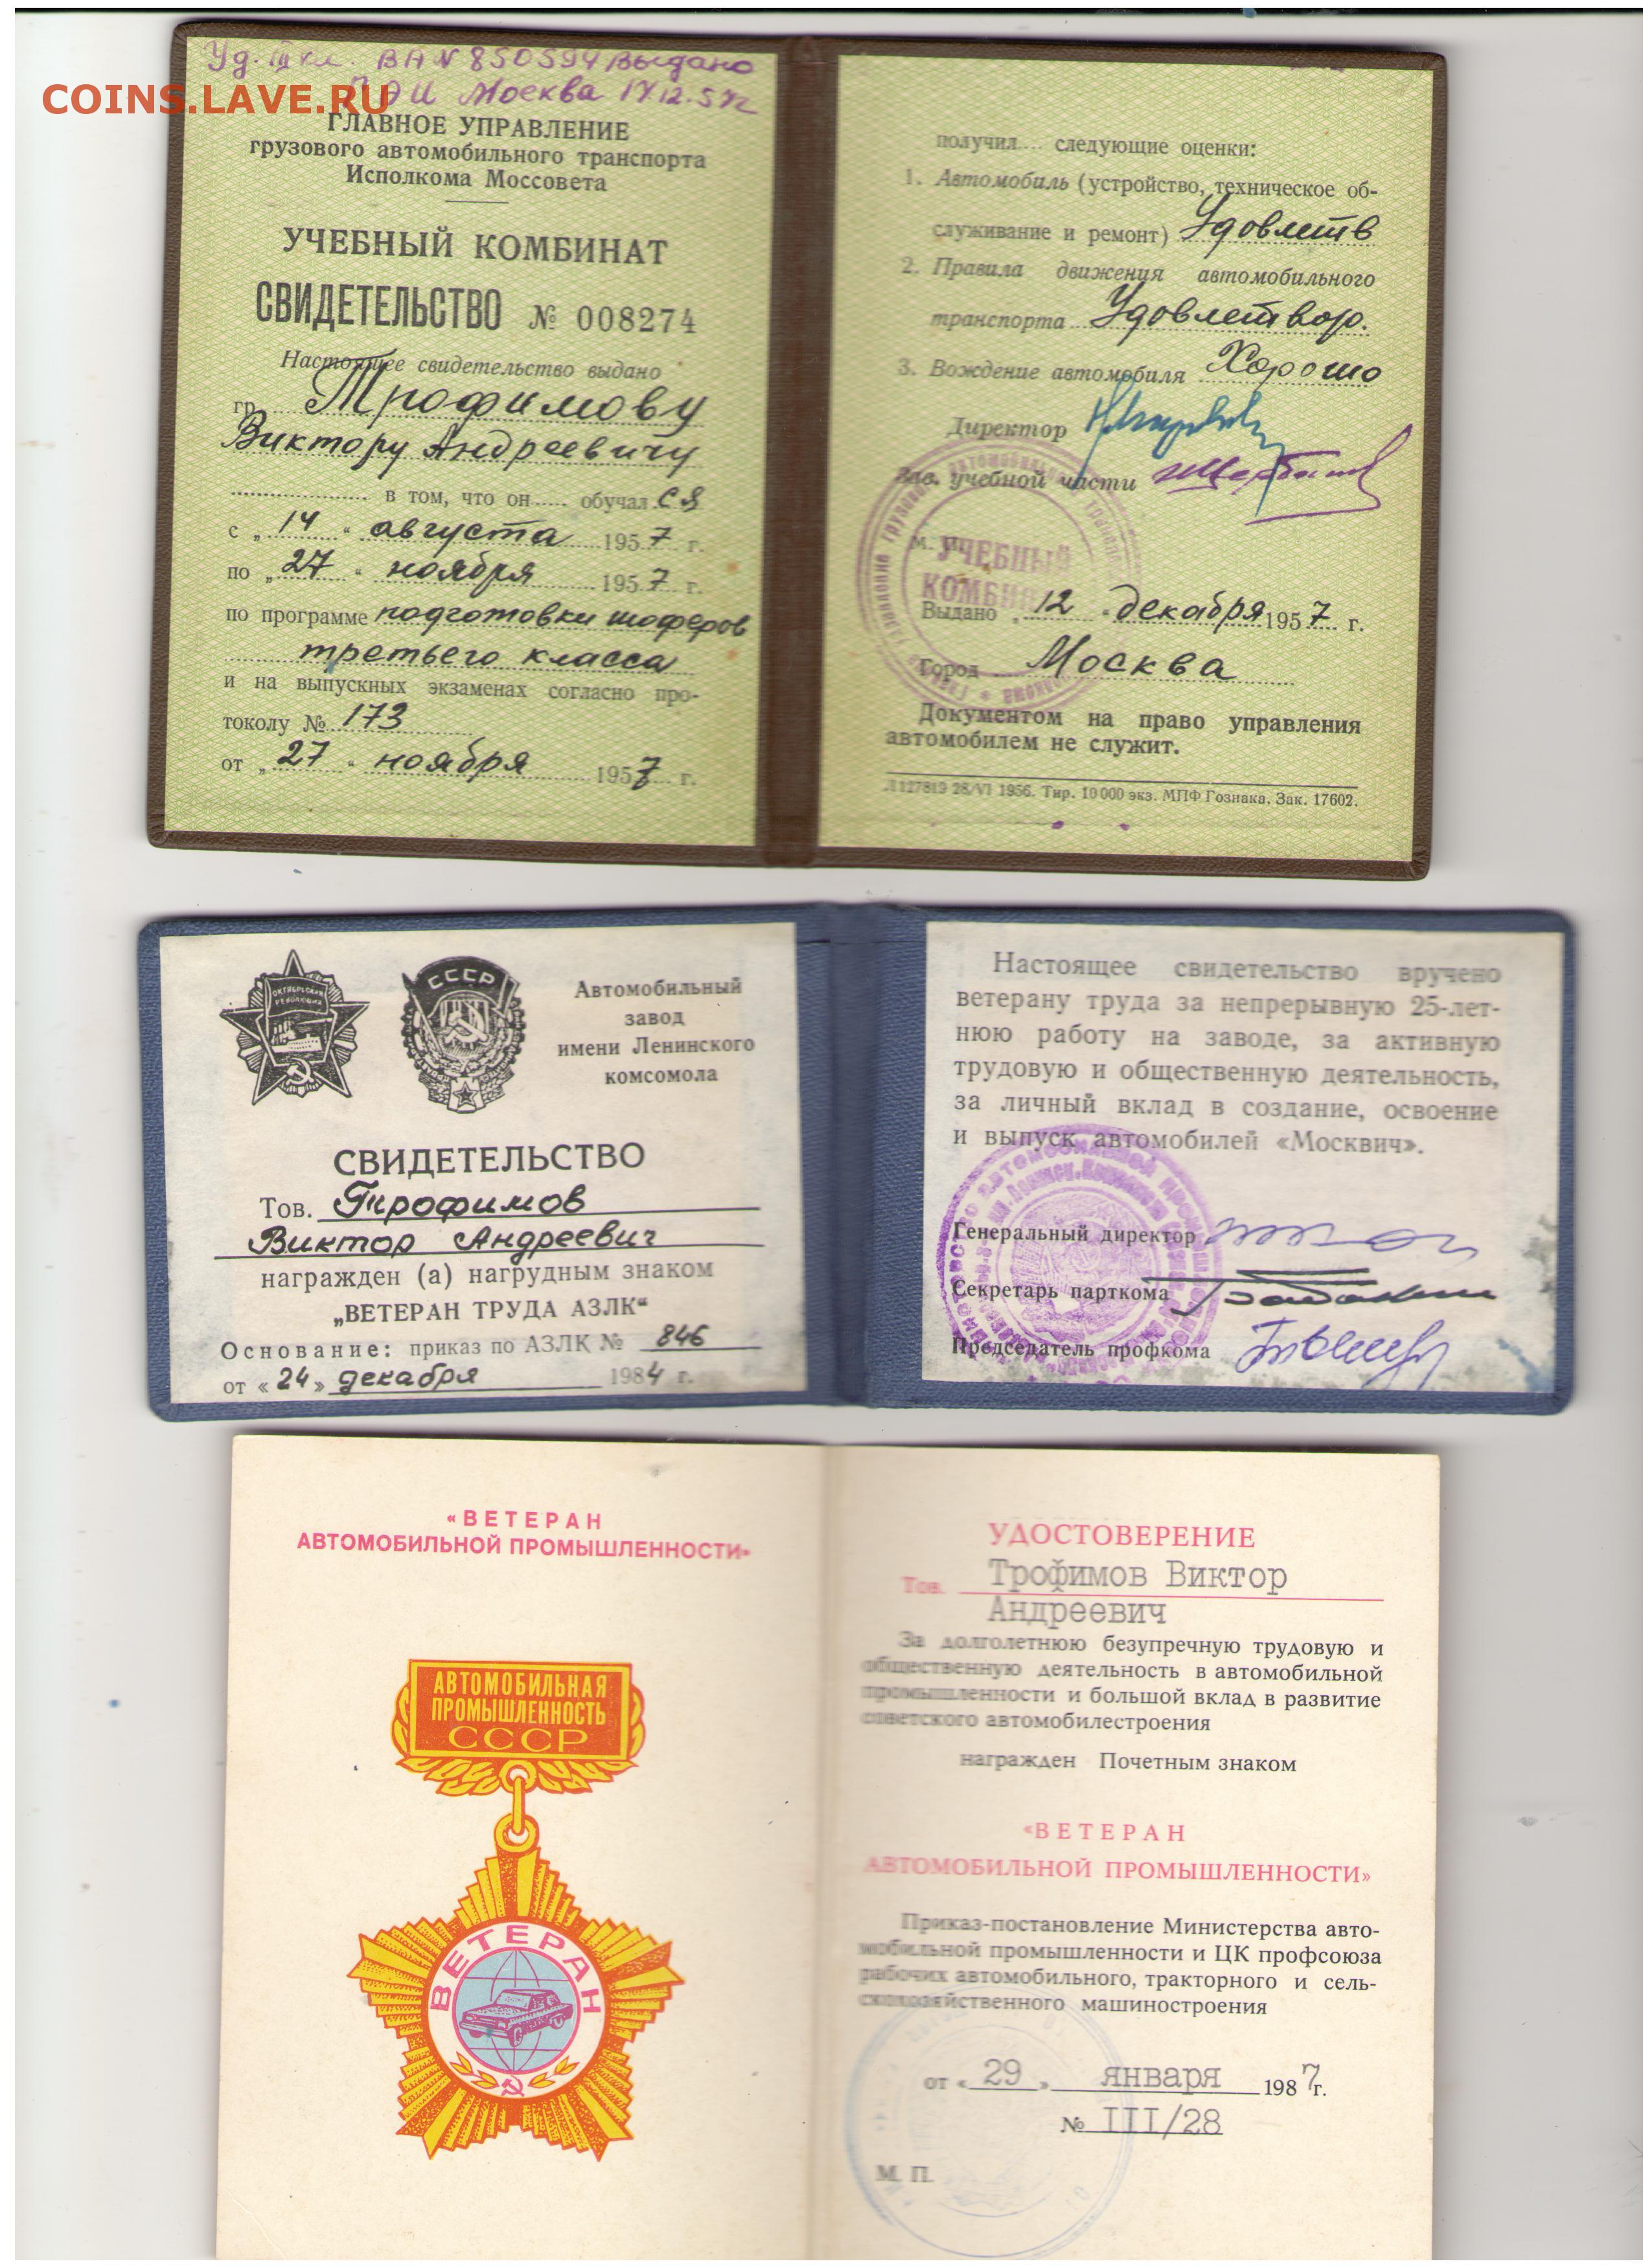 Уд. III кл. ВА № 850594 Выдано
Москва 17.12.57г
COINS.LAVE.RU
ГЛАВНОЕ УПРАВЛЕНИЕ
грузового автомобильного транспорта
Исполкома Моссовета
УЧЕБНЫЙ КОМБИНАТ
СВИДЕТЕЛЬСТВО № 008274
Настоящее свидетельство выдано
гр. Трофимову
Виктору Андреевичу
в том, что он обучал ся
с „14“ августа 1957 г.
по „27“ ноября 1957 г.
по программе подготовки шоферов
третьего класса
и на выпускных экзаменах согласно про-
токолу № 173
от „27“ ноября 1957 г.
получил следующие оценки:
1. Автомобиль (устройство, техническое об-
служивание и ремонт) Удовлетв
2. Правила движения автомобильного
транспорта Удовлетвор.
3. Вождение автомобиля Хорошо
Директор
Зав. учебной части
М. П.
УЧЕБНЫЙ
КОМБИНАТ
Выдано „12“ декабря 1957 г.
Город Москва
Документом на право управления
автомобилем не служит.
Л127819 28/VI 1956. Тир. 10 000 экз. МПФ Гознака. Зак. 17602.
ОКТЯБРЬСКАЯ
РЕВОЛЮЦИЯ
СССР
Автомобильный
завод
имени Ленинского
комсомола
СВИДЕТЕЛЬСТВО
Тов. Трофимов
Виктор Андреевич
награжден (а) нагрудным знаком
„ВЕТЕРАН ТРУДА АЗЛК“
Основание: приказ по АЗЛК № 846
от «24» декабря 1984 г.
Настоящее свидетельство вручено
ветерану труда за непрерывную 25-лет-
нюю работу на заводе, за активную
трудовую и общественную деятельность,
за личный вклад в создание, освоение
и выпуск автомобилей «Москвич».
Генеральный директор
Секретарь парткома
Председатель профкома
«ВЕТЕРАН
АВТОМОБИЛЬНОЙ ПРОМЫШЛЕННОСТИ»
АВТОМОБИЛЬНАЯ
ПРОМЫШЛЕННОСТЬ
СССР
ВЕТЕРАН
УДОСТОВЕРЕНИЕ
Тов. Трофимов Виктор
Андреевич
За долголетнюю безупречную трудовую и
общественную деятельность в автомобильной
промышленности и большой вклад в развитие
советского автомобилестроения
награжден Почетным знаком
«ВЕТЕРАН
АВТОМОБИЛЬНОЙ ПРОМЫШЛЕННОСТИ»
Приказ-постановление Министерства авто-
мобильной промышленности и ЦК профсоюза
рабочих автомобильного, тракторного и сель-
скохозяйственного машиностроения
от «29» января 1987г.
№ III/28
М. П.